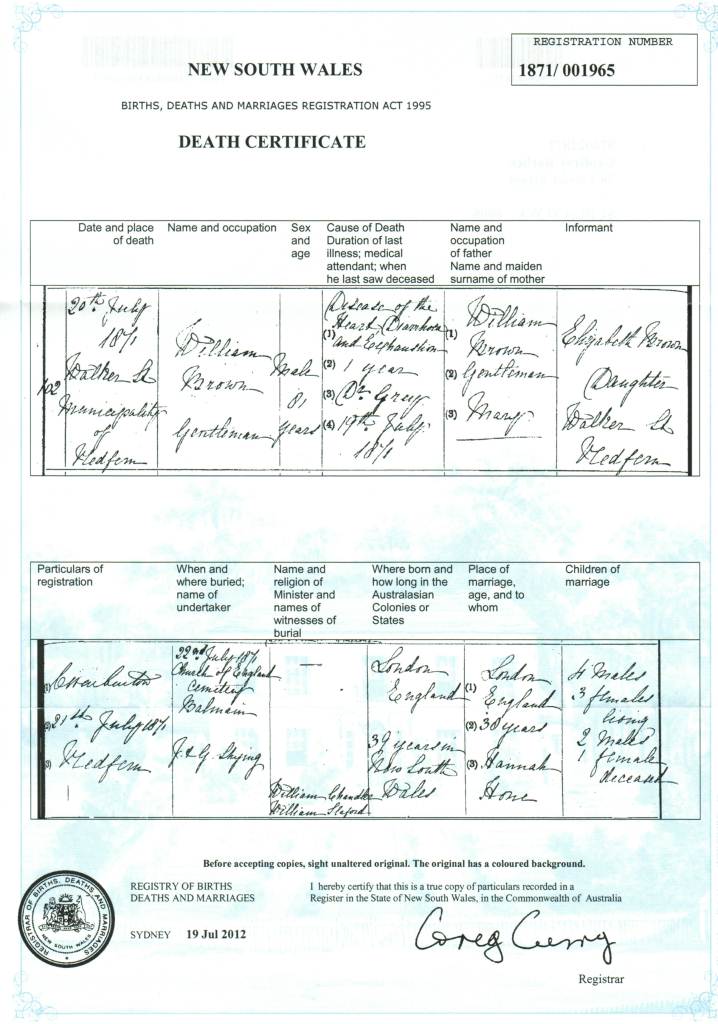 REGISTRATION NUMBER
1871/ 001965
NEW SOUTH WALES
BIRTHS, DEATHS AND MARRIAGES REGISTRATION ACT 1995
DEATH CERTIFICATE
Date and place
of death
Name and occupation
Sex
and
age
Cause of Death
Duration of last
illness; medical
attendant; when
he last saw deceased
Name and
occupation
of father
Name and maiden
surname of mother
Informant
102
20th July
1871
Walker St
Municipality
of
Redfern
William
Brown
Gentleman
Male
81
years
Disease of the
(1) Heart Diarrhoea
and Exhaustion
(2) 1 year
(3) Dr Grey
(4) 19th July
1871
(1) William
Brown
(2) Gentleman
(3) Mary
Elizabeth Brown
Daughter
Walker St
Redfern
Particulars of
registration
When and
where buried;
name of
undertaker
Name and
religion of
Minister and
names of
witnesses of
burial
Where born and
how long in the
Australasian
Colonies or
States
Place of
marriage,
age, and to
whom
Children of
marriage
(1)
(2) 21st July 1871
(3) Redfern
22nd July 1871
Church of England
Cemetery
Balmain
J. & G.
—
William Chandler
William
London
England
39 years in
New South
Wales
(1) London
England
(2) 30 years
(3) Hannah
Hone
4 Males
3 females
living
2 Males
1 female
deceased
Before accepting copies, sight unaltered original. The original has a coloured background.
REGISTRY OF BIRTHS
DEATHS AND MARRIAGES
SYDNEY 19 Jul 2012
I hereby certify that this is a true copy of particulars recorded in a
Register in the State of New South Wales, in the Commonwealth of Australia
Greg Curry
Registrar
REGISTRAR OF BIRTHS, DEATHS AND MARRIAGES
NEW SOUTH WALES